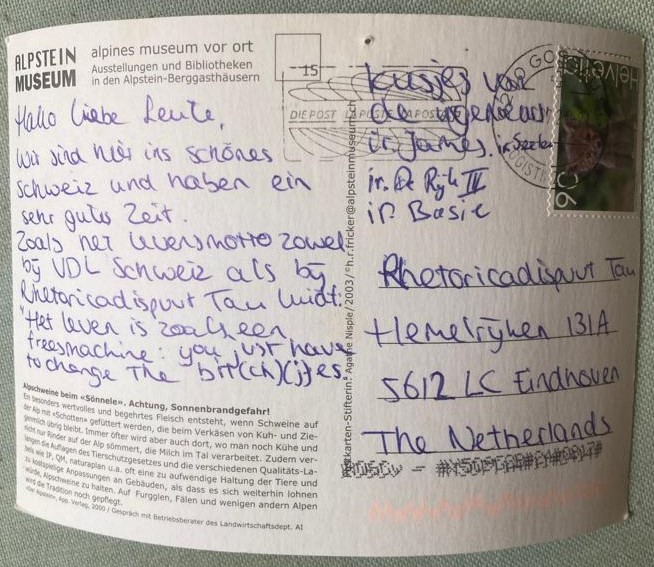 ALPSTEIN
MUSEUM
alpines museum vor ort
Ausstellungen und Bibliotheken
in den Alpstein-Berggasthäusern
Hallo liebe Leute,
Wir sind hier ins schönes
Schweiz und haben ein
sehr gutes Zeit.
Zoals het levensmotto zowel
bij VDL Schweiz als bij
Rhetoricadispuut Tau luidt:
"Het leven is zoals een
freesmachine: you just have
to change the bit(ch)(j)es.
Alpschweine beim «Sönnele». Achtung, Sonnenbrandgefahr!
Ein besonders wertvolles und begehrtes Fleisch entsteht, wenn Schweine auf
der Alp mit «Schotten» gefüttert werden, die beim Verkäsen von Kuh- und Zie-
genmilch übrig bleibt. Immer öfter wird aber auch dort, wo man noch Kühe und
nicht nur Rinder auf der Alp sömmert, die Milch im Tal verarbeitet. Zudem ver-
langen die Auflagen des Tierschutzgesetzes und die verschiedenen Qualitäts-La-
bels wie IP, QM, naturaplan u.a. oft eine zu aufwendige Haltung der Tiere und
zu kostspielige Anpassungen an Gebäuden, als dass es sich weiterhin lohnen
würde, Alpschweine zu halten. Auf Furgglen, Fälen und wenigen andern Alpen
wird die Tradition noch gepflegt.
«Der Alpstein», App. Verlag, 2000 / Gespräch mit Betriebsberater des Landwirtschaftsdept. AI
Postkarten-Stifterin: Agathe Nisple/2003/©h.r.fricker@alpsteinmuseum.ch
15
DIE POST LA POSTE LA POSTA
Helvetia
kusjes van
de
ir. James
ir. De Rijk III
ir. Basie
Rhetoricadispuut Tau
Hemelrijken 131A
5612 LC Eindhoven
The Netherlands